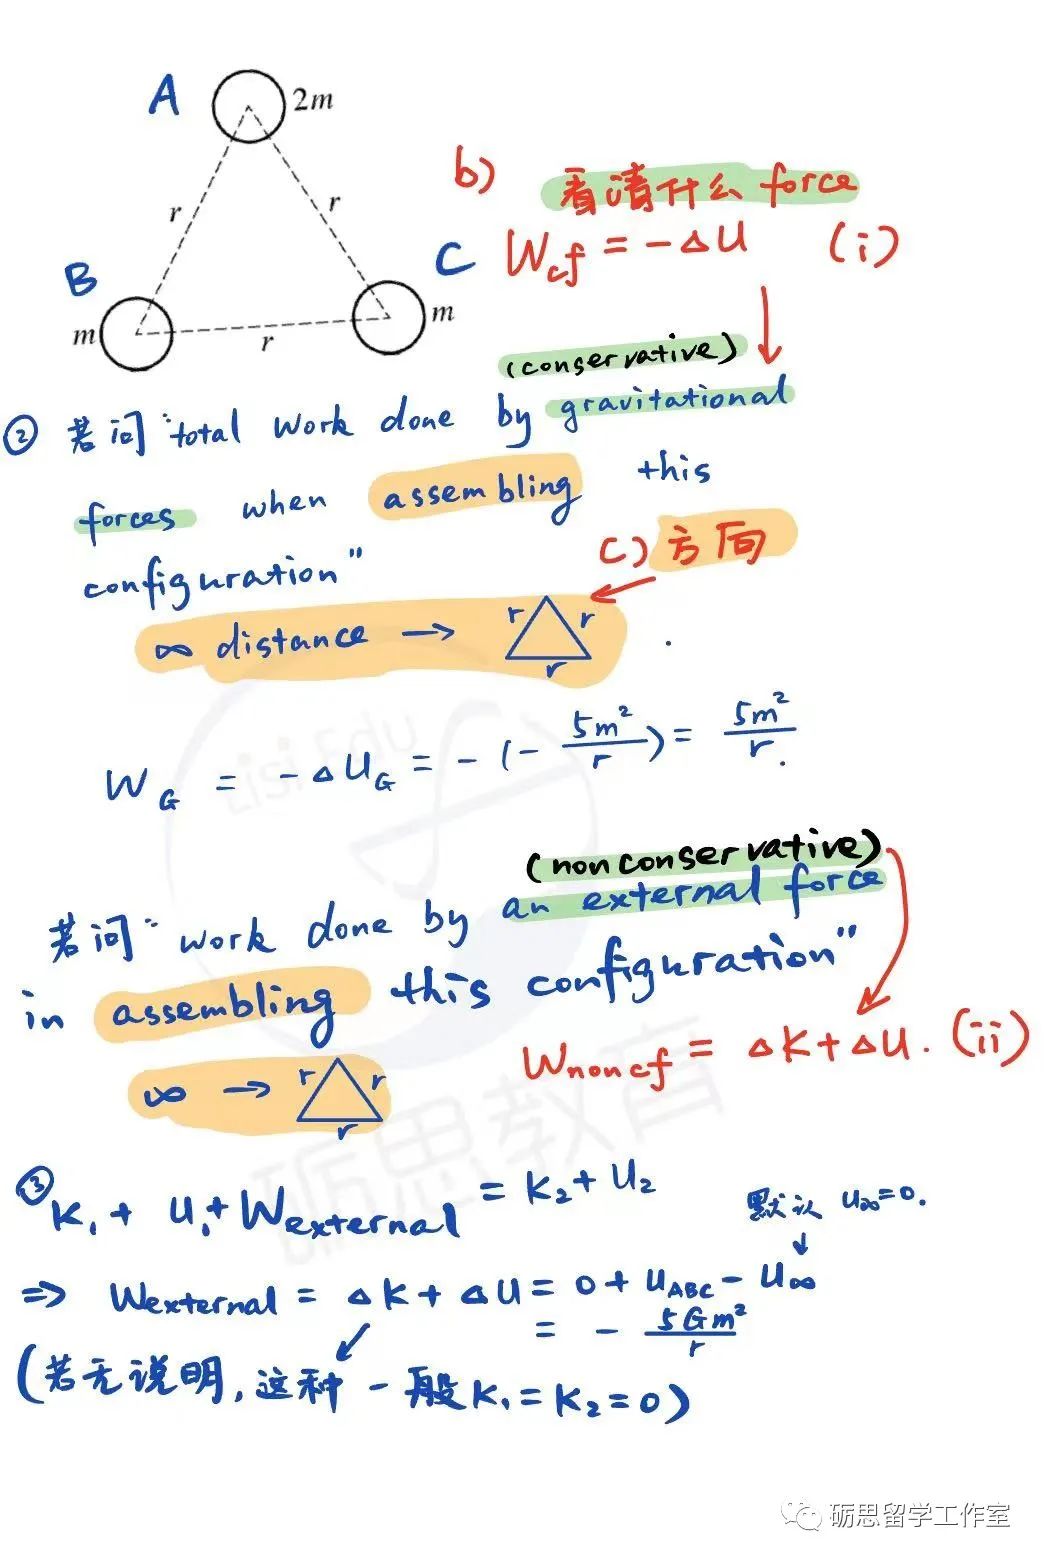 A
2m
r
r
B
C
m
r
m
b) 看清什么 force
Wcf = -△U (i)
(conservative)
② 若问 "total work done by gravitational
forces when assembling this
configuration"
c) 方向
∞ distance → r r r .
W_G = -△U_G = -(-5m²/r) = 5m²/r.
(nonconservative)
若问 "work done by an external force
in assembling this configuration"
Wnoncf = △K+△U. (ii)
∞ → r r r
③ K₁ + U₁ + Wexternal = K₂ + U₂
默认 U∞=0.
⇒ Wexternal = △K + △U = 0 + U_ABC - U∞
= - 5Gm²/r
(若无说明, 这种一般 K₁=K₂=0)
Lisi Edu
砺思教育
砺思留学工作室